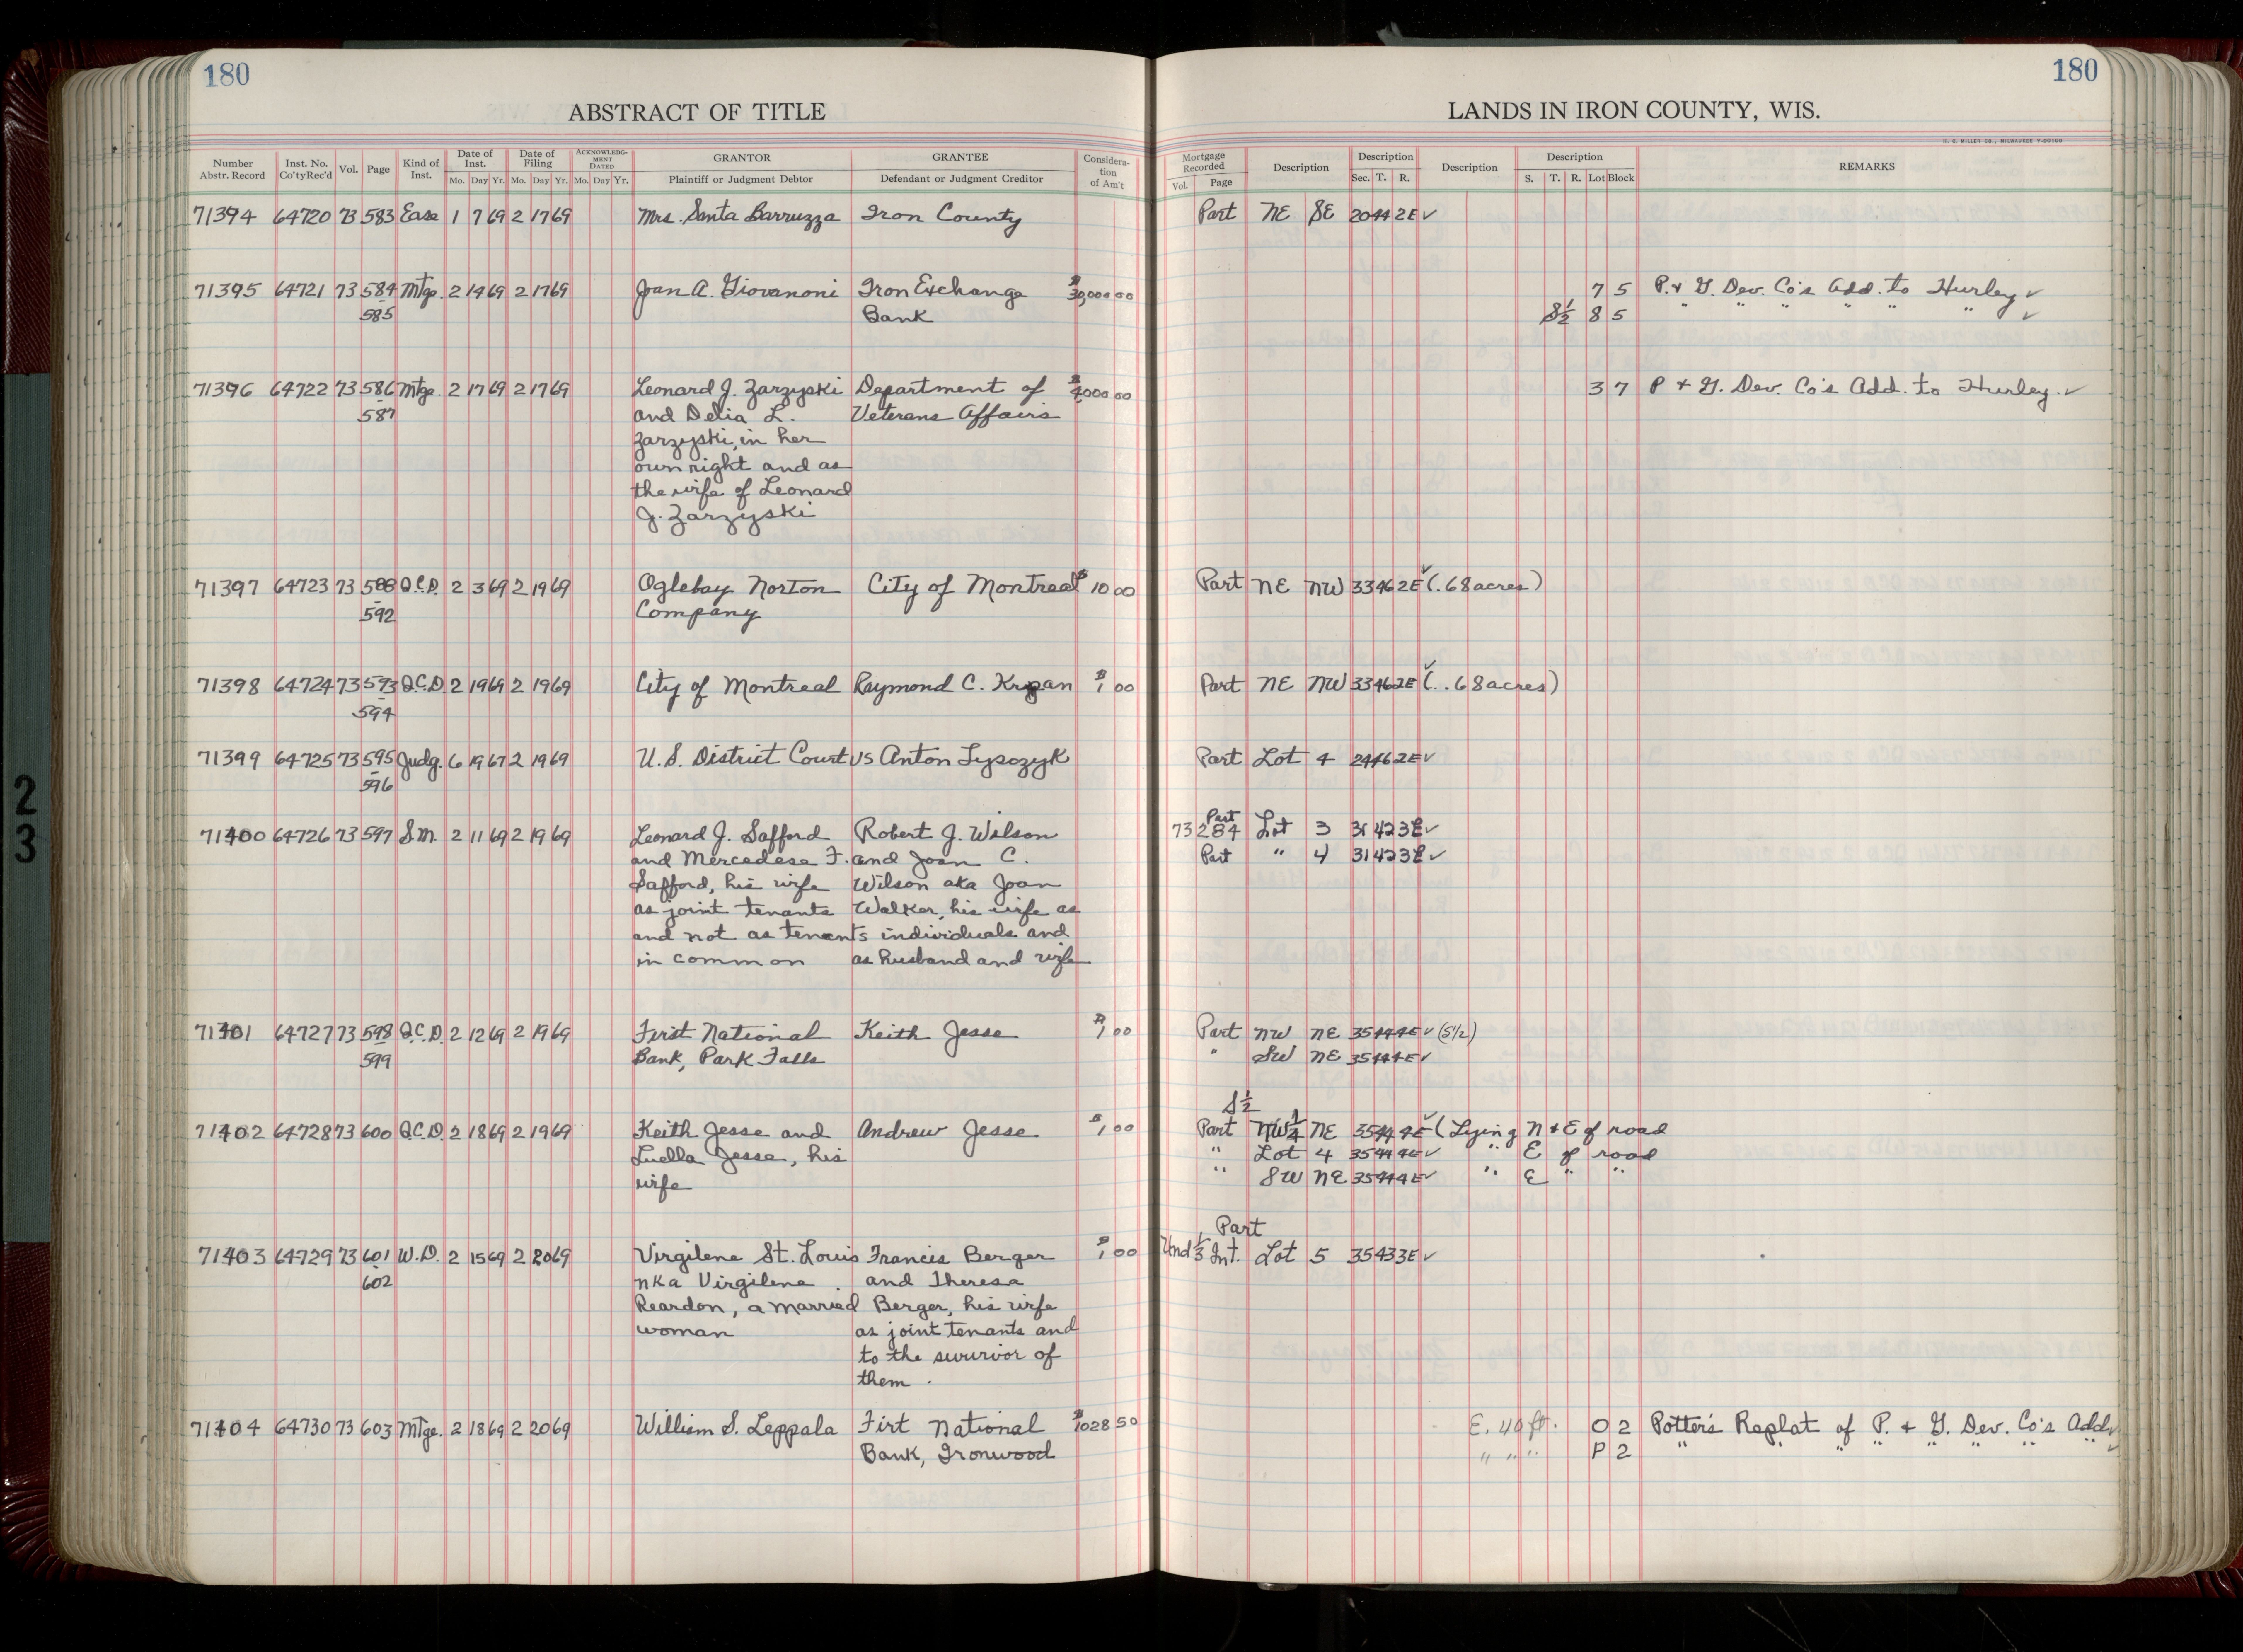 180
180
ABSTRACT OF TITLE
LANDS IN IRON COUNTY, WIS.
H. C. MILLER CO., MILWAUKEE
Number Abstr. Record Inst. No. Co'ty Rec'd Vol. Page Kind of Inst. Date of Inst. Mo. Day Yr. Date of Filing Mo. Day Yr. ACKNOWLEDG-MENT DATED Mo. Day Yr. GRANTOR Plaintiff or Judgment Debtor GRANTEE Defendant or Judgment Creditor Considera-tion of Am't Mortgage Recorded Vol. Page Description Description Sec. T. R. Description Description S. T. R. Lot Block REMARKS
71394 64720 73 583 Ease 1 7 69 2 17 69 Mrs. Santa Barruzza Iron County Part NE SE 20 44 2E ✓
71395 64721 73 584 Mtge. 2 14 69 2 17 69 Joan A. Giovanoni Iron Exchange $30,000 00 7 5 P. & G. Dev. Co's Add. to Hurley ✓
- 585 Bank S½ 8 5 " " " " " " ✓
71396 64722 73 586 Mtge. 2 17 69 2 17 69 Leonard J. Zarzyski Department of $4,000 00 3 7 P & G. Dev. Co's Add. to Hurley. ✓
- 587 and Delia L. Veterans Affairs
Zarzyski, in her
own right and as
the wife of Leonard
J. Zarzyski
71397 64723 73 588 Q.C.D. 2 3 69 2 19 69 Oglebay Norton City of Montreal $10 00 Part NE NW 33 46 2E ✓ (.68 acres)
- 592 Company
71398 64724 73 593 Q.C.D. 2 19 69 2 19 69 City of Montreal Raymond C. Krpan $1 00 Part NE NW 33 46 2E ✓ (..68 acres)
- 594
71399 64725 73 595 Judg. 6 19 67 2 19 69 U.S. District Court vs Anton Lysczyk Part Lot 4 24 46 2E ✓
- 596
Part
71400 64726 73 597 S.M. 2 11 69 2 19 69 Leonard J. Safford Robert J. Wilson 73 284 Lot 3 31 42 3E ✓
and Mercedese F. and Joan C. Part " 4 31 42 3E ✓
Safford, his wife Wilson aka Joan
as joint tenants Walker, his wife as
and not as tenants individuals and
in common as husband and wife
71401 64727 73 598 Q.C.D. 2 12 69 2 19 69 First National Keith Jesse $1 00 Part NW NE 35 44 4E ✓ (S½)
- 599 Bank, Park Falls " SW NE 35 44 4E ✓
S½
71402 64728 73 600 Q.C.D. 2 18 69 2 19 69 Keith Jesse and Andrew Jesse $1 00 Part NW¼ NE 35 44 4E ✓ (Lying N & E of road
Luella Jesse, his " Lot 4 35 44 4E ✓ " E of road
wife " SW NE 35 44 4E ✓ " E " "
Part
71403 64729 73 601 W.D. 2 15 69 2 20 69 Virgilene St. Louis Francis Berger $1 00 Und ⅓ Int. Lot 5 35 43 3E ✓
- 602 nka Virgilene and Theresa
Reardon, a married Berger, his wife
woman as joint tenants and
to the survivor of
them.
71404 64730 73 603 Mtge. 2 18 69 2 20 69 William S. Leppala Firt National $1028 50 E. 40 ft. O 2 Potter's Replat of P. & G. Dev. Co's Add ✓
Bank, Ironwood " " " P 2 " " " " " " " " ✓
2
3